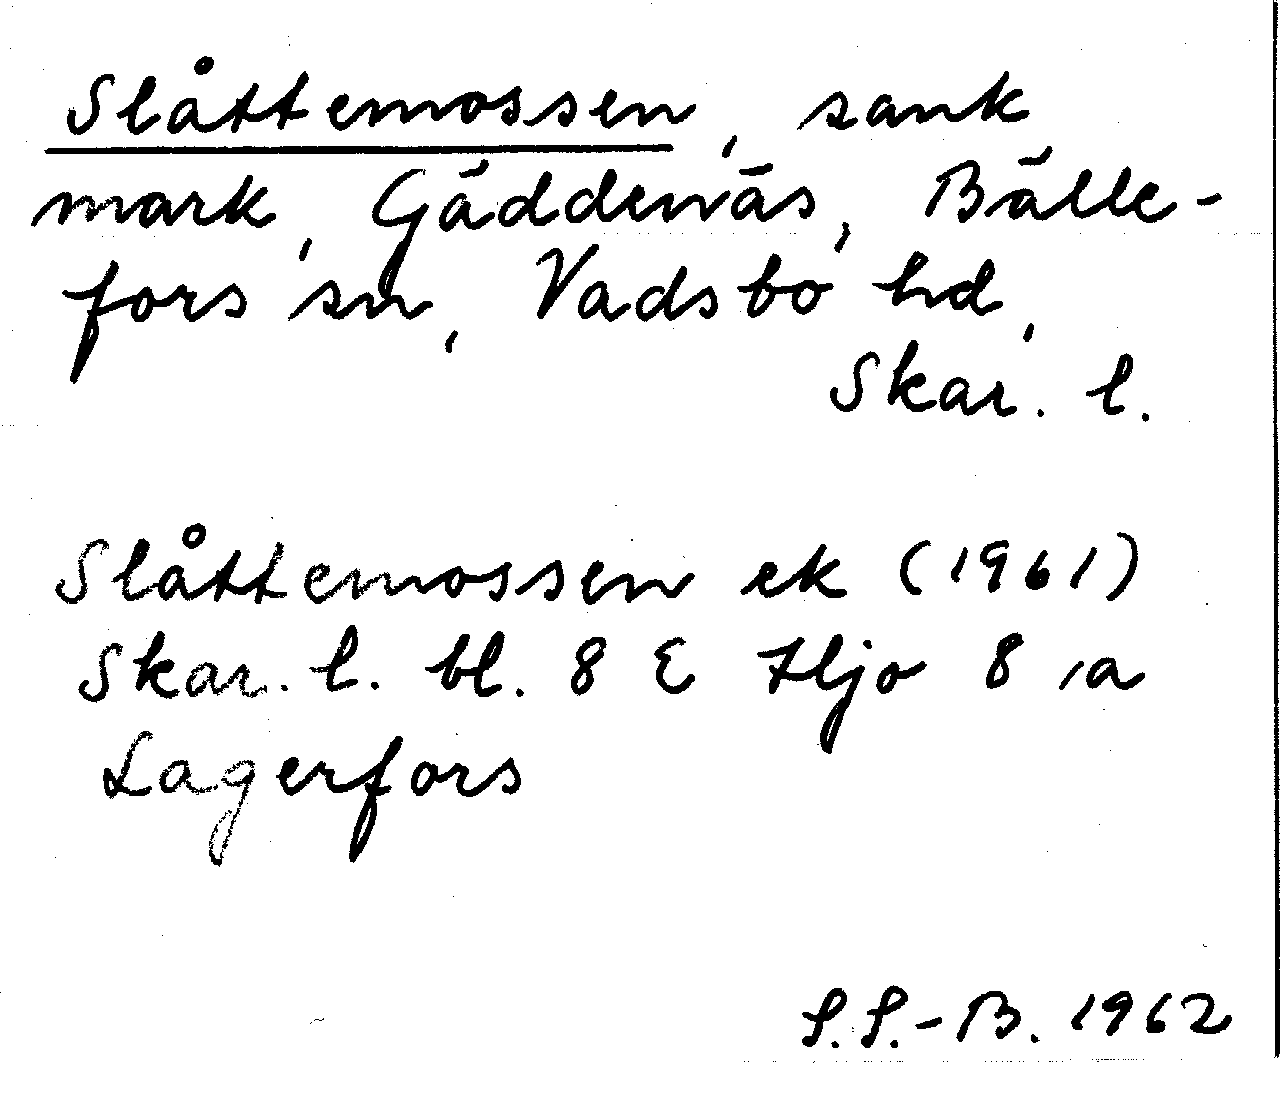 Slåttemossen, sank
mark, Gäddenäs, Bälle-
fors sn, Vadsbo hd,
Skar. l.
Slåttemossen ek (1961)
Skar. l. bl. 8 E Hjo 8 ,a
Lagerfors
S.S.-B. 1962